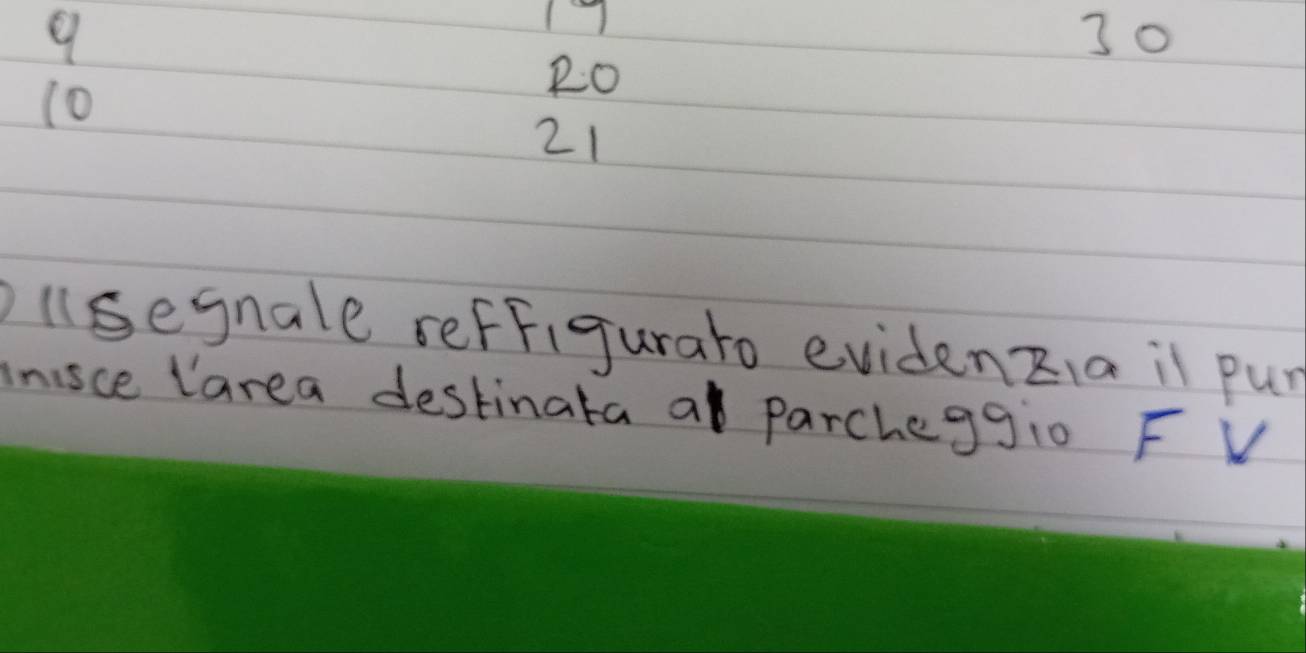 9 19 30
10 20
21
Il segnale reffigurato evidenzia il pun
inisce l'area destinata al parcheggio F V